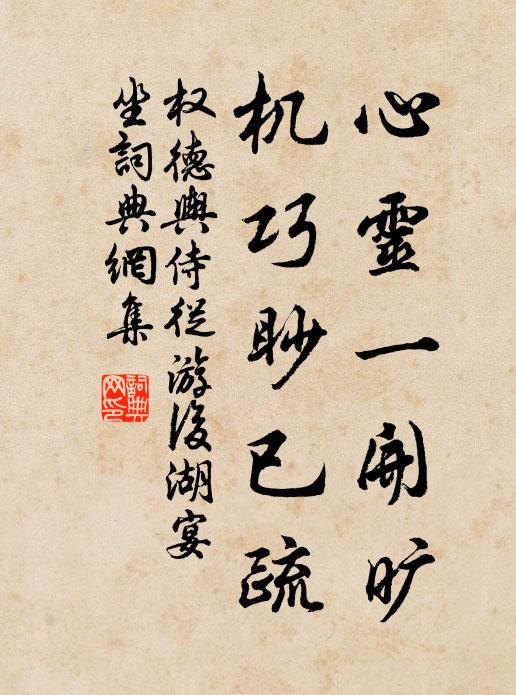 心靈一開旷
机巧眇已疏
权德輿侍從游後湖宴
坐詞典網集
詞典网印